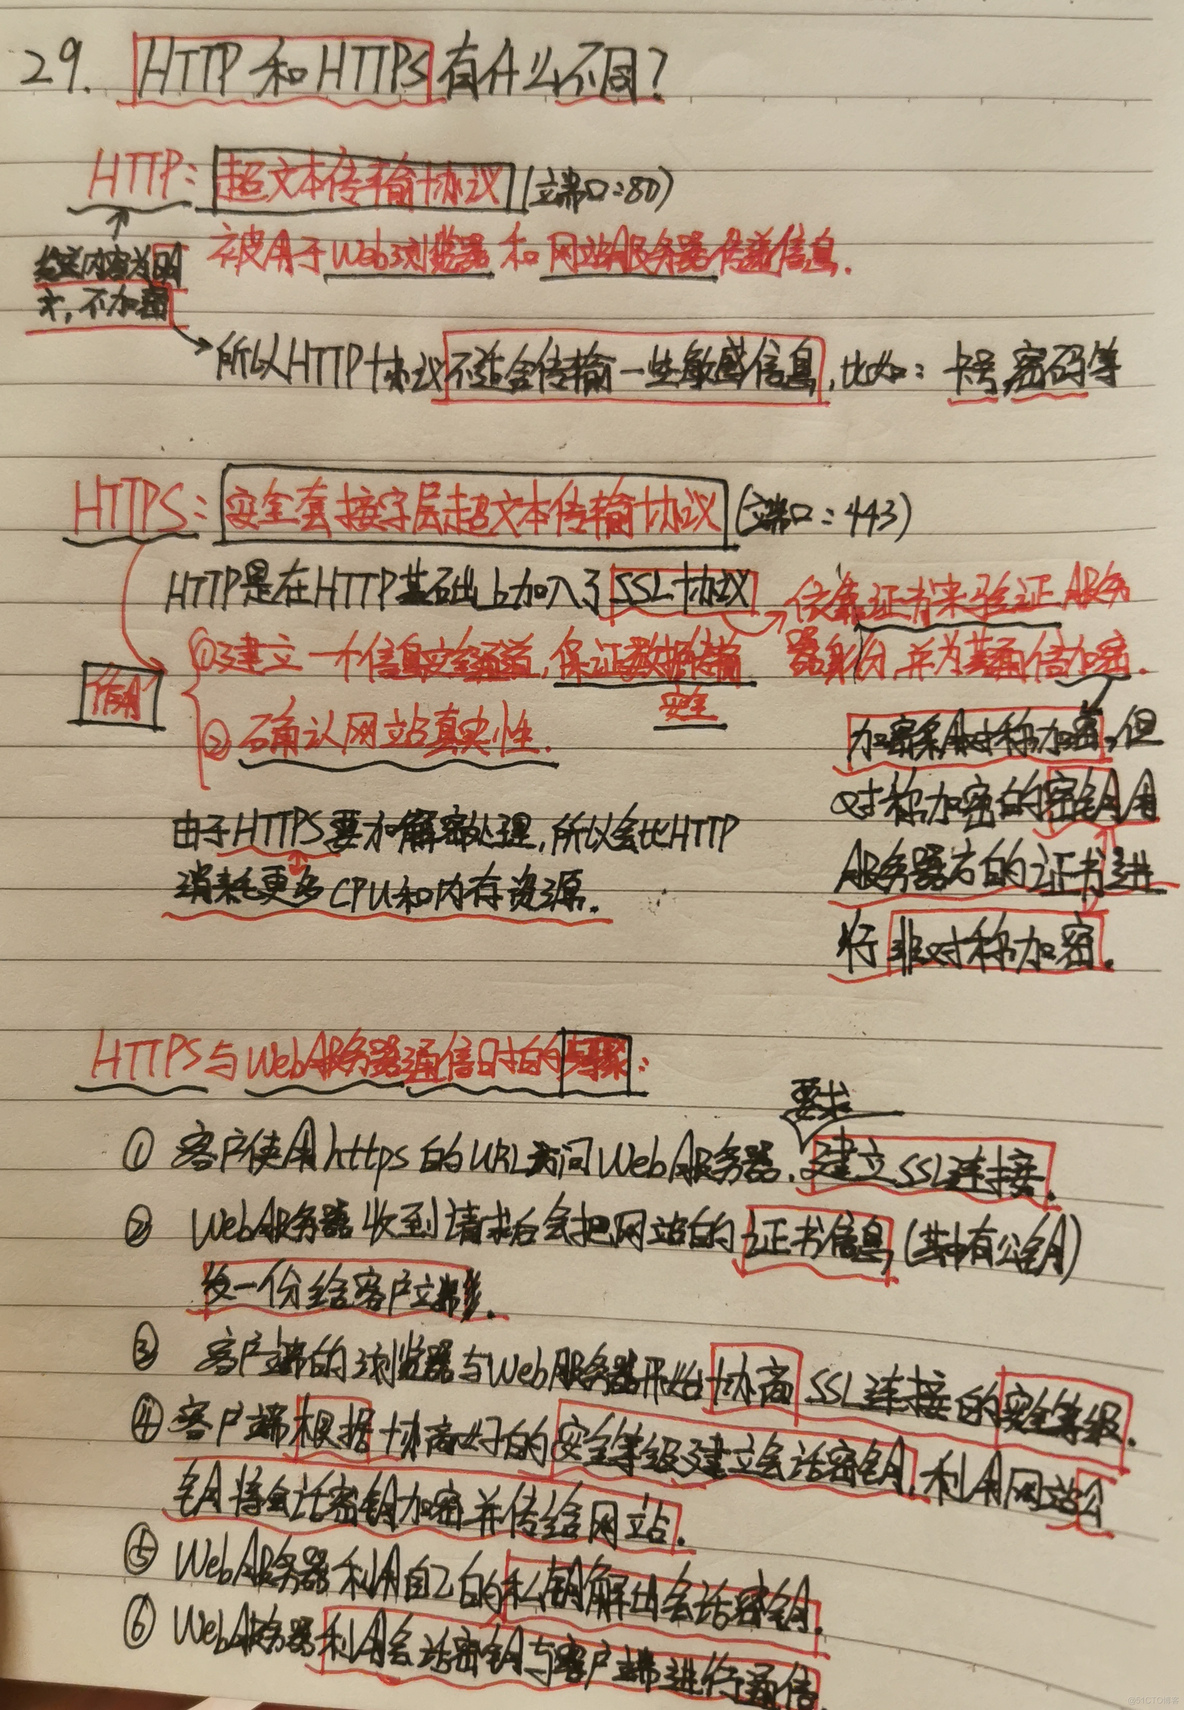 29. HTTP和HTTPS有什么不同?
HTTP: 超文本传输协议(端口:80)
发送内容为明
文,不加密
被用于Web浏览器和网站服务器传递信息.
所以HTTP协议不适合传输一些敏感信息,比如:卡号,密码等
HTTPS: 安全套接字层超文本传输协议(端口:443)
HTTP是在HTTP基础上加入了SSL协议
依靠证书来验证服务
器身份,并为其通信加密.
作用
①建立一个信息安全通道,保证数据传输
安全
②确认网站真实性.
加密采用对称加密,但
对称加密的密钥用
服务器方的证书进
行非对称加密.
由于HTTPS要加解密处理,所以会比HTTP
消耗更多CPU和内存资源.
HTTPS与Web服务器通信时的步骤:
要求
① 客户使用https的URL访问Web服务器.建立SSL连接.
② Web服务器收到请求后会把网站的证书信息(其中有公钥)
发一份给客户端.
③ 客户端的浏览器与Web服务器开始协商SSL连接的安全等级.
④ 客户端根据协商好的安全等级建立会话密钥,利用网站公
钥将会话密钥加密并传给网站.
⑤ Web服务器利用自己的私钥解出会话密钥.
⑥ Web服务器利用会话密钥与客户端进行通信.
@51CTO博客